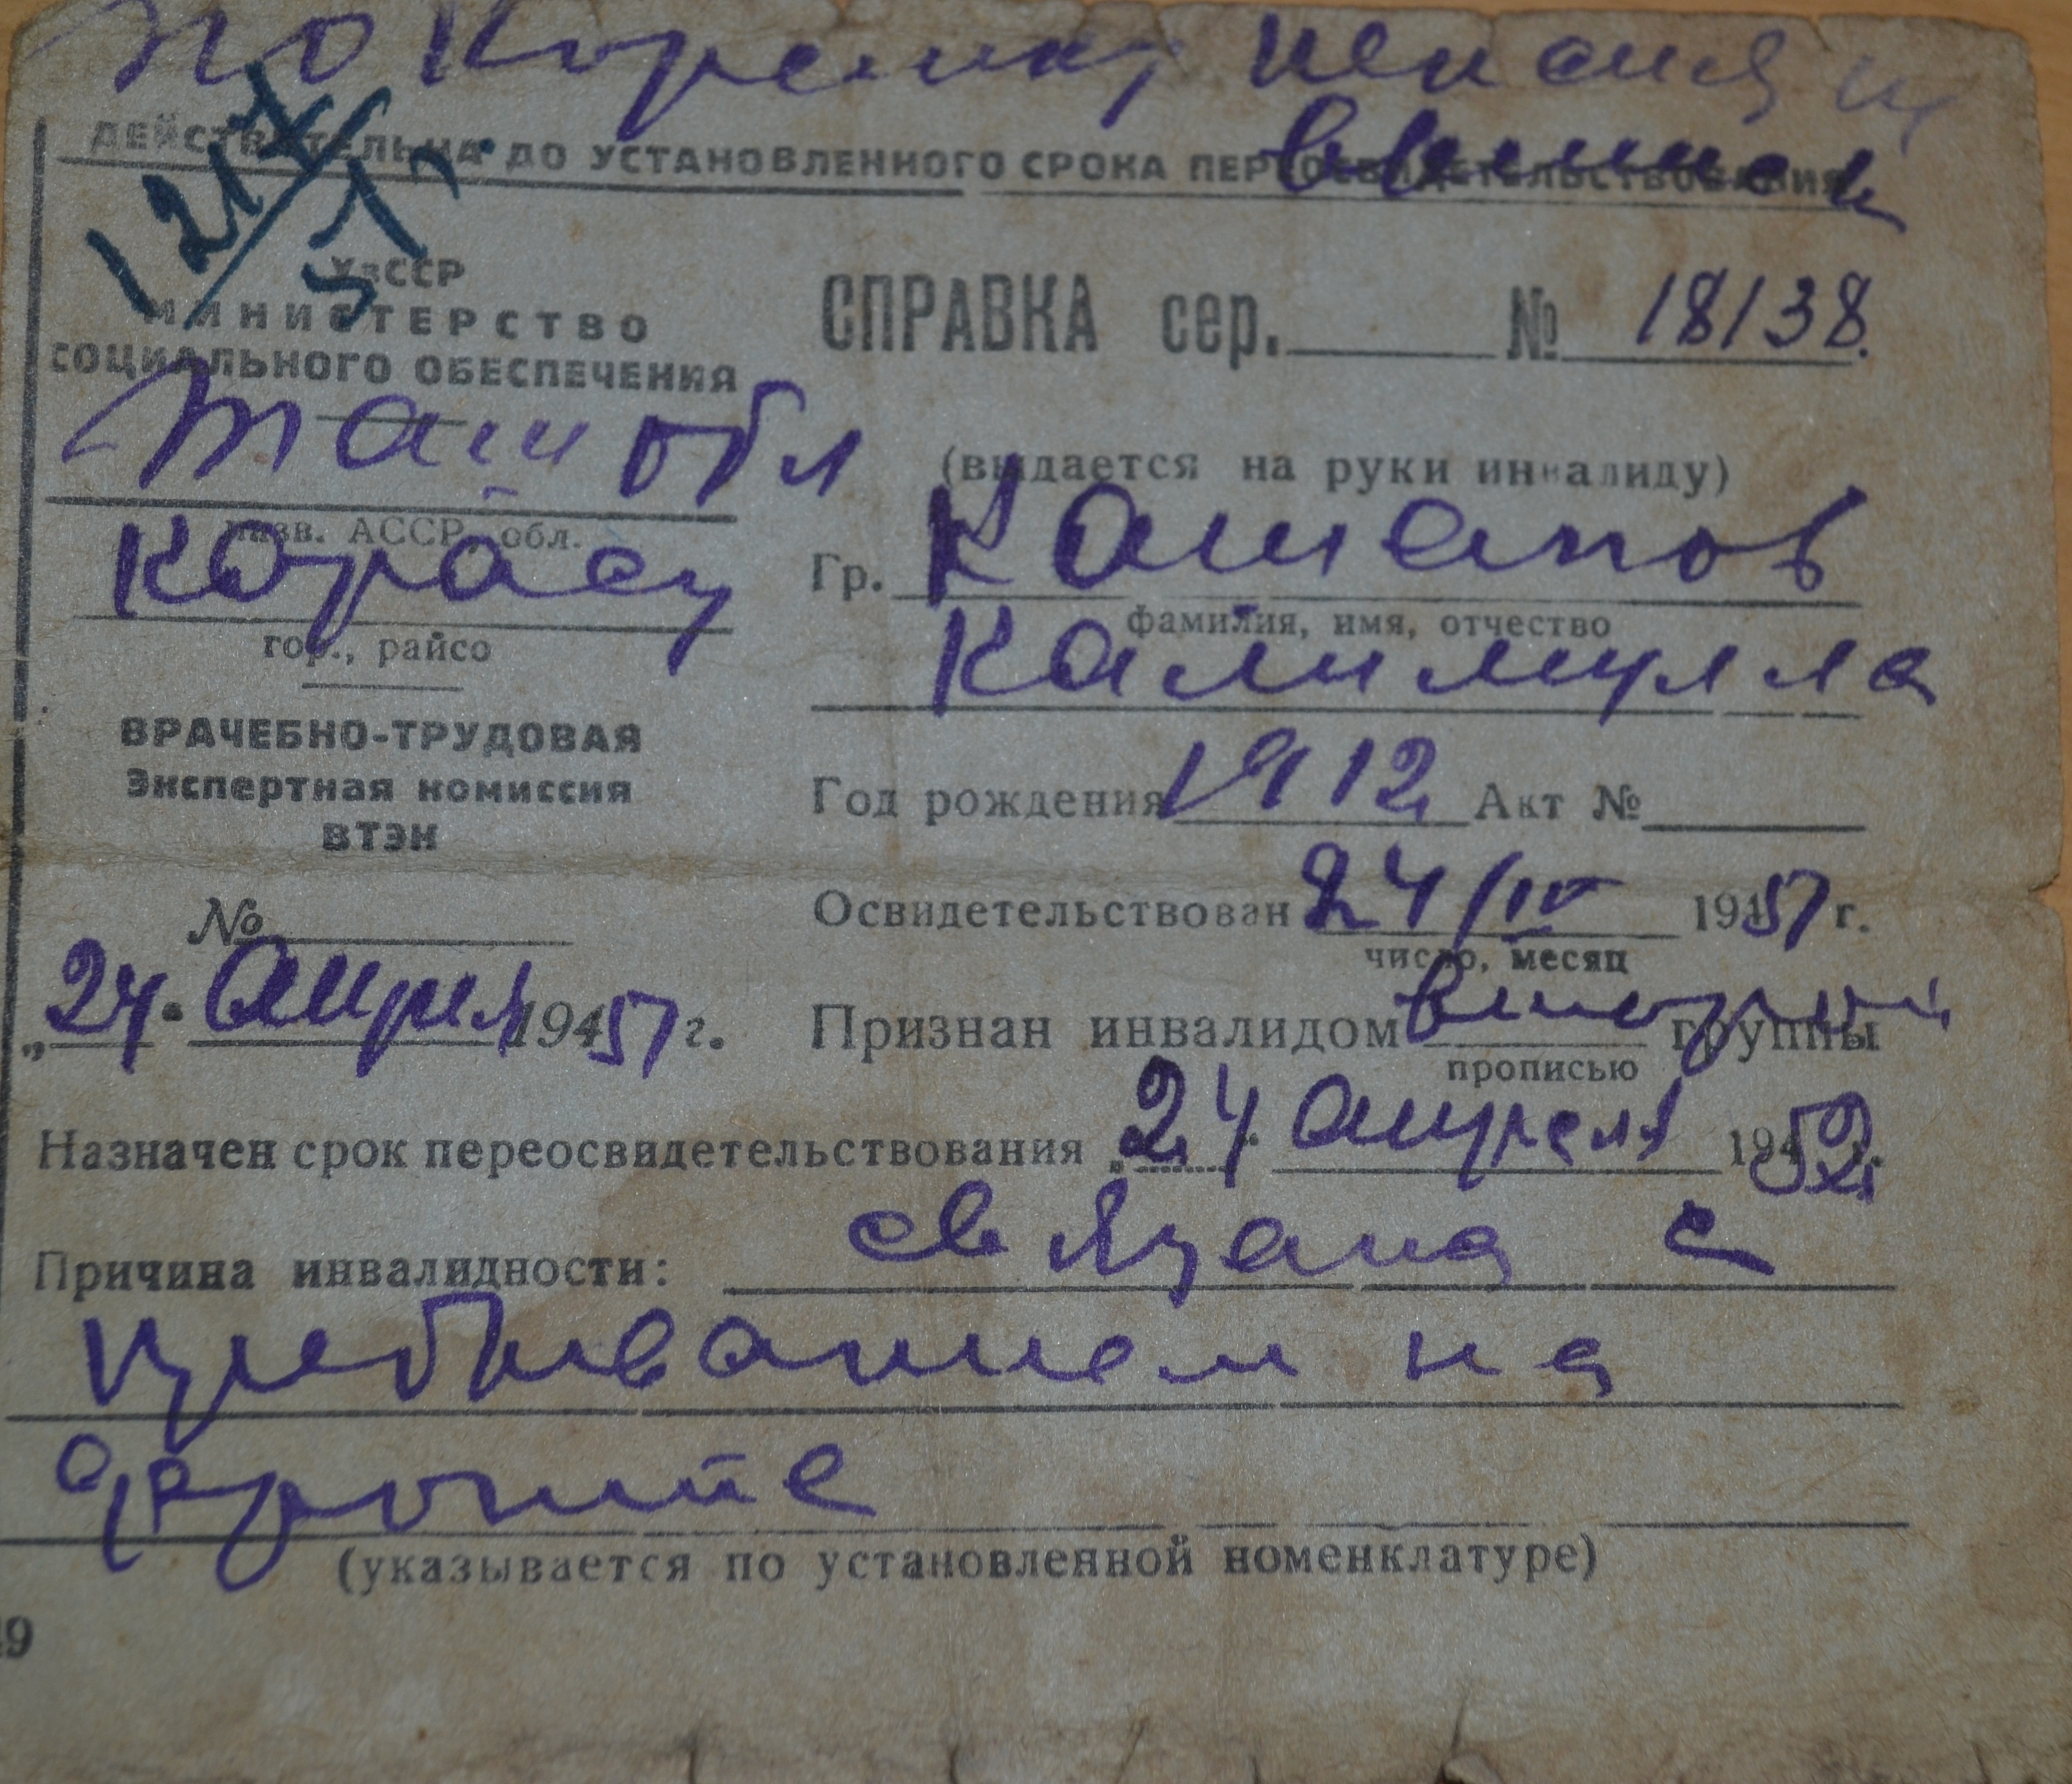 ДЕЙСТВИТЕЛЬНА ДО УСТАНОВЛЕННОГО СРОКА ПЕРЕОСВИДЕТЕЛЬСТВОВАНИЯ
УзССР
МИНИСТЕРСТВО
СОЦИАЛЬНОГО ОБЕСПЕЧЕНИЯ
Таш обл
назв. АССР, обл.
Карасу
гор., райсо
ВРАЧЕБНО-ТРУДОВАЯ
Экспертная комиссия
ВТЭК
№
„24" апреля 1951 г.
СПРАВКА сер. № 18138
(выдается на руки инвалиду)
Гр. Кашапов
фамилия, имя, отчество
Калимулла
Год рождения 1912 Акт №
Освидетельствован 24/IV 1951 г.
число, месяц
Признан инвалидом второй группы
прописью
Назначен срок переосвидетельствования „24" апреля 1952 г.
Причина инвалидности: связана с
пребыванием на
фронте
(указывается по установленной номенклатуре)
49